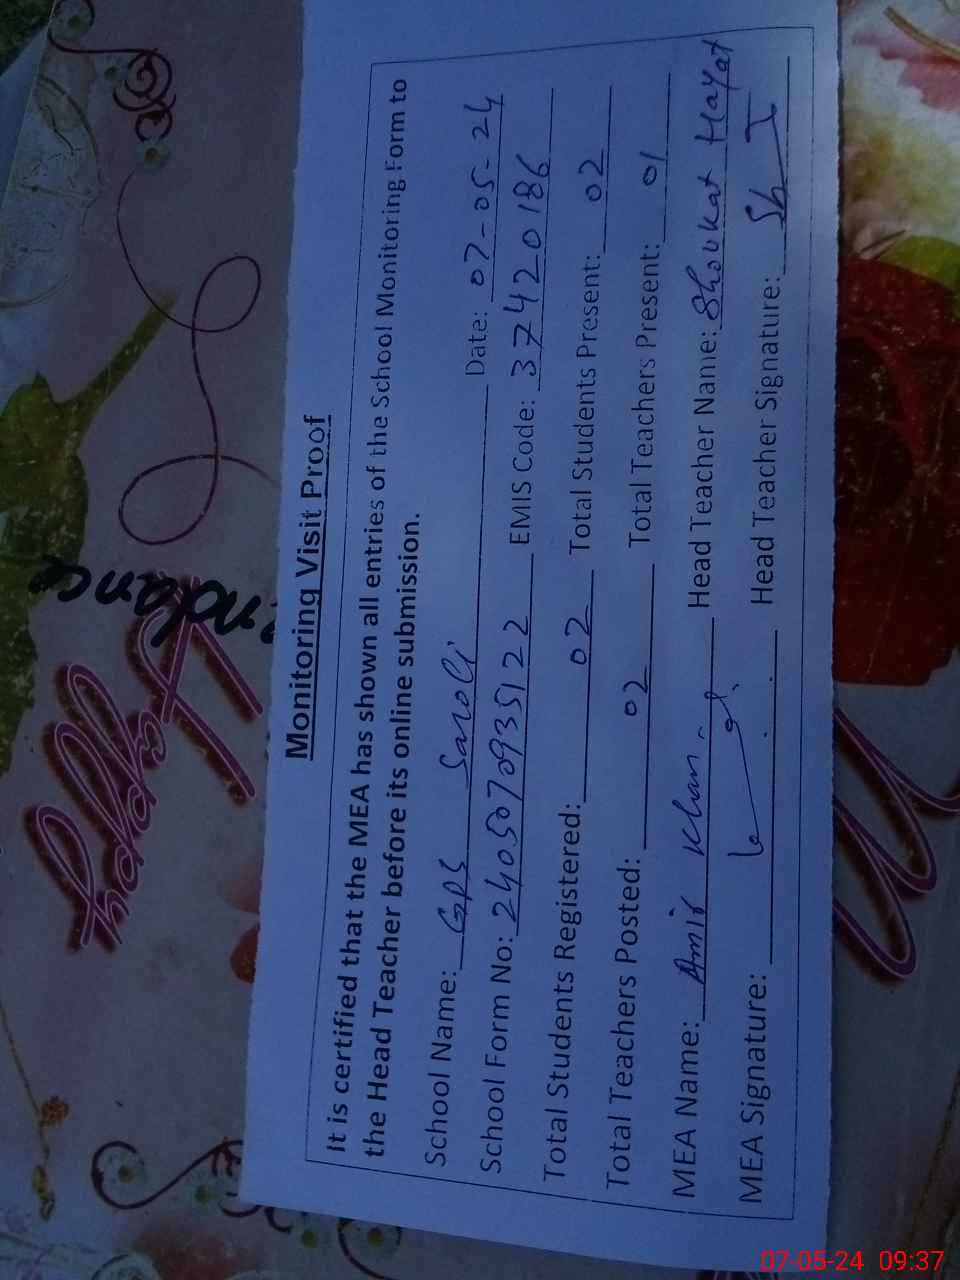 Monitoring Visit Proof
It is certified that the MEA has shown all entries of the School Monitoring Form to
the Head Teacher before its online submission.
School Name: GPS Saroli Date: 07-05-24
School Form No: 2405070935122 EMIS Code: 37420186
Total Students Registered: 02 Total Students Present: 02
Total Teachers Posted: 02 Total Teachers Present: 01
MEA Name: Amir Khan. Head Teacher Name: Shoukat Hayat
MEA Signature: Head Teacher Signature: Sh
Happy
07-05-24 09:37